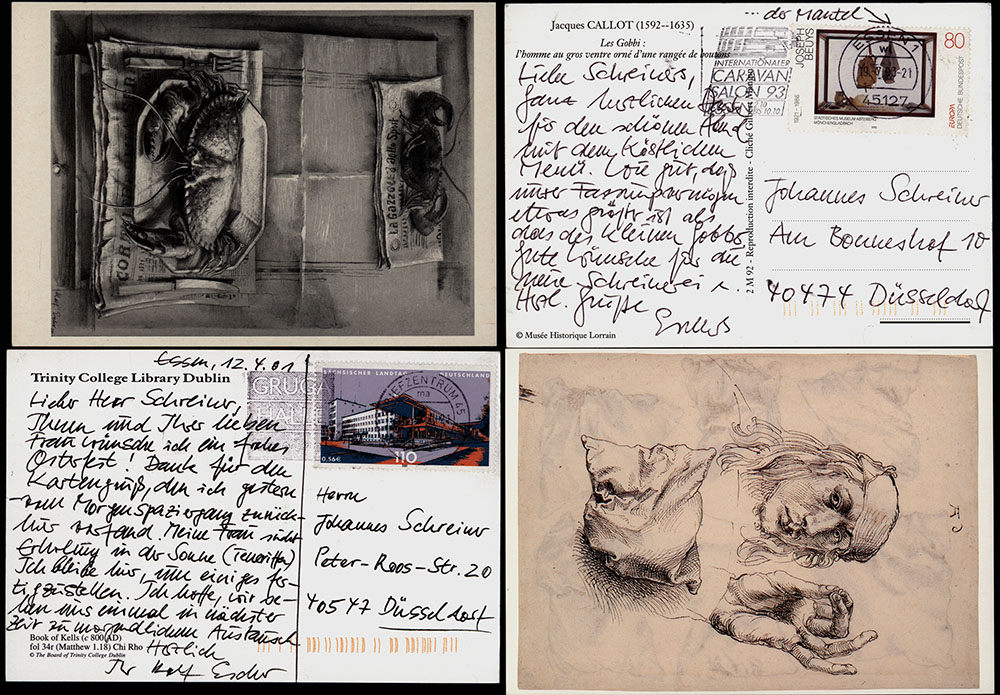 CORR
La Gazzetta dello Sport
Jacques CALLOT (1592--1635)
Les Gobbi :
l'homme au gros ventre orné d'une rangée de boutons
der Mantel
Liebe Schreiners,
Ganz herzlichen Dank
für den schönen Abend
mit dem köstlichen
Menü. Wie gut, daß
unser Fassungsvermögen
etwas größer ist als
das des kleinen Gobbo.
Gute Wünsche für die
neue Schreinerei u.
Herzl. Grüße
Eschers
© Musée Historique Lorrain
2 M 92 - Reproduction interdite - Cliché Gilbert
INTERNATIONALER
CARAVAN
SALON 93
ESSEN
45127
JOSEPH
BEUYS
1921 - 1986
80
DEUTSCHE BUNDESPOST
EUROPA
STÄDTISCHES MUSEUM ABTEIBERG
MÖNCHENGLADBACH
Johannes Schreiner
Am Bonneshof 10
40474 Düsseldorf
Essen, 12.4.01
Trinity College Library Dublin
Lieber Herr Schreiner,
Ihnen und Ihrer lieben
Frau wünsche ich ein frohes
Osterfest! Danke für den
Kartengruß, den ich gestern
vom Morgenspaziergang zurück
hier vorfand. Meine Frau sucht
Erholung in der Sonne (Teneriffa)
Ich bleibe hier, um einiges fer-
tigzustellen. Ich hoffe, wir se-
hen uns einmal in nächster
Zeit zu mündlichem Austausch
Herzlich
Ihr Rolf Escher
Book of Kells (c 800 AD)
fol 34r (Matthew 1.18) Chi Rho
© The Board of Trinity College Dublin
GRUGA
HALLE
BRIEFZENTRUM 45
ma
SÄCHSISCHER LANDTAG
DEUTSCHLAND
0,56€
110
Herrn
Johannes Schreiner
Peter-Roos-Str. 20
40547 Düsseldorf